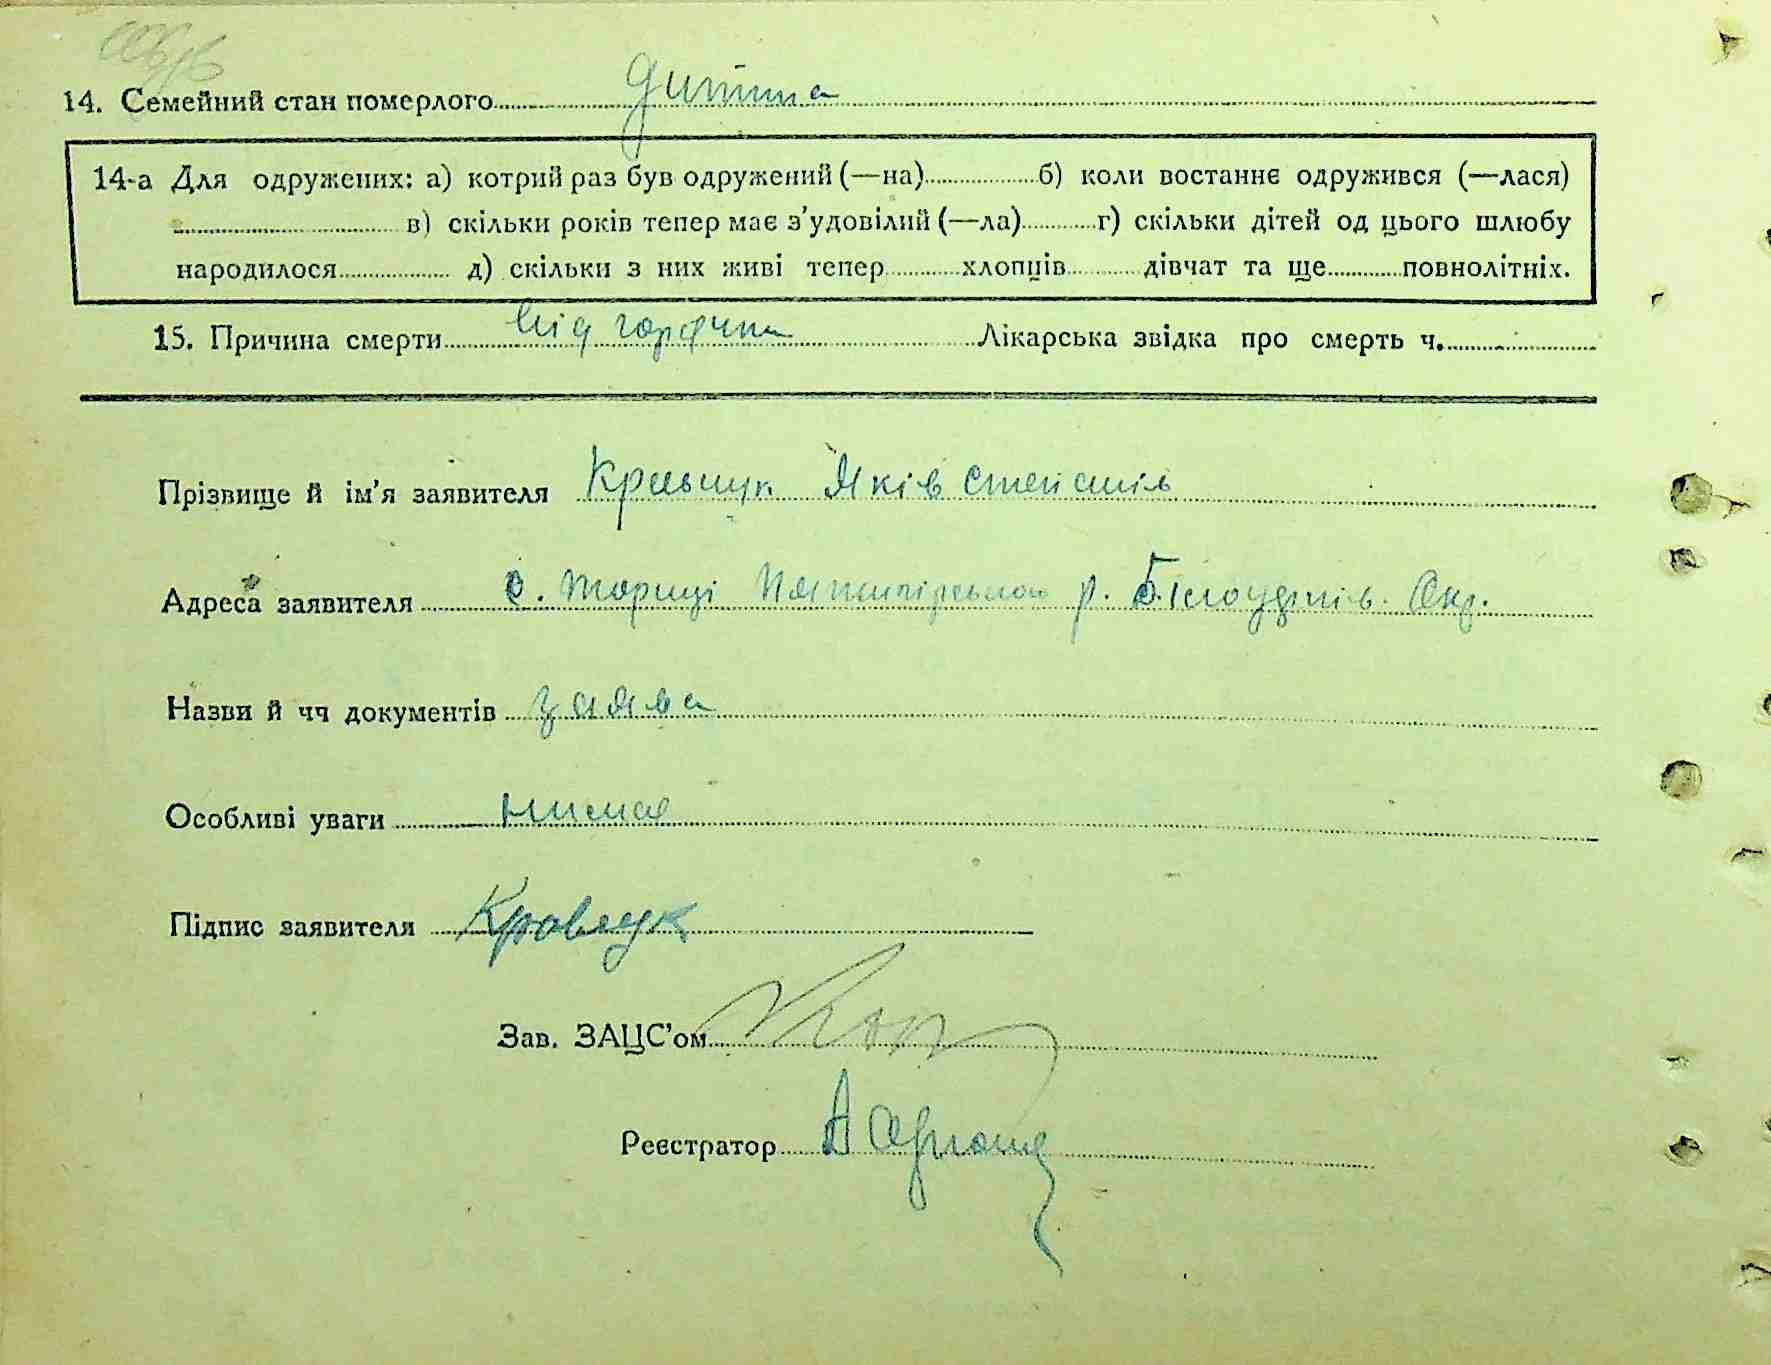 14. Семейний стан померлого дитина
14-а Для одружених: а) котрий раз був одружений (—на) б) коли востаннє одружився (—лася)
в) скільки років тепер має з'удовілий (—ла) г) скільки дітей од цього шлюбу
народилося д) скільки з них живі тепер хлопців дівчат та ще повнолітніх.
15. Причина смерти від горячки Лікарська звідка про смерть ч.
Прізвище й ім'я заявителя Кравчук Яків Степанів
Адреса заявителя с. Ториці р. Окр.
Назви й чч документів заява
Особливі уваги нимає
Підпис заявителя Кровчук
Зав. ЗАЦС'ом
Реєстратор